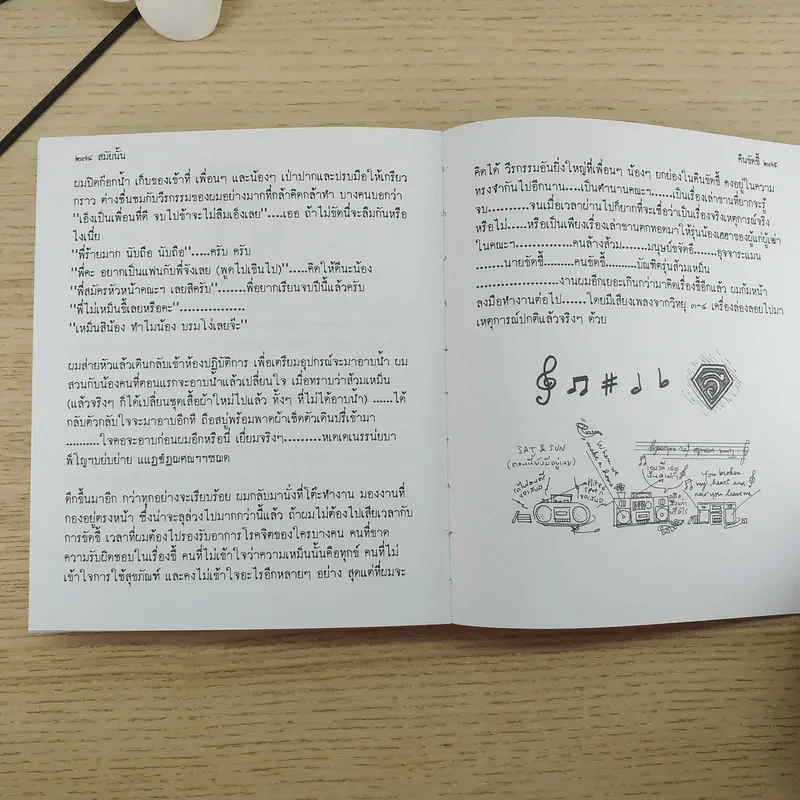 ๒๗๔ สมัยนั้น
ผมปิดก๊อกน้ำ เก็บของเข้าที่ เพื่อนๆ และน้องๆ เป่าปากและปรบมือให้เกรียว
กราว ต่างชื่นชมกับวีรกรรมของผมอย่างมากที่กล้าคิดกล้าทำ บางคนบอกว่า
"เอ็งเป็นเพื่อนที่ดี จบไปข้าจะไม่ลืมเอ็งเลย"....เออ ถ้าไม่ขัดนี่จะลืมกันหรือ
ไงเนี่ย
"พี่ร้ายมาก นับถือ นับถือ".....ครับ ครับ
"พี่คะ อยากเป็นแฟนกับพี่จังเลย (พูดไปเขินไป)".....คิดให้ดีนะน้อง
"พี่สมัครหัวหน้าคณะฯ เลยสิครับ".......พี่อยากเรียนจบปีนี้แล้วครับ
"พี่ไม่เหม็นขี้เลยหรือคะ"................
"เหม็นสิน้อง ทำไมน้อง บรมโง่เลยจ๊ะ"
ผมส่ายหัวแล้วเดินกลับเข้าห้องปฏิบัติการ เพื่อเตรียมอุปกรณ์จะมาอาบน้ำ ผม
สวนกับน้องคนที่ตอนแรกจะอาบน้ำแล้วเปลี่ยนใจ เมื่อทราบว่าส้วมเหม็น
(แล้วจริงๆ ก็ได้เปลี่ยนชุดเสื้อผ้าใหม่ไปแล้ว ทั้งๆ ที่ไม่ได้อาบน้ำ) ......ได้
กลับตัวกลับใจจะมาอาบอีกที ถือสบู่พร้อมพาดผ้าเช็ดตัวเดินปรี่เข้ามา
..........ใจคอจะอาบก่อนผมอีกหรือนี่ เยี่ยมจริงๆ..........
ดึกขึ้นมาอีก กว่าทุกอย่างจะเรียบร้อย ผมกลับมานั่งที่โต๊ะทำงาน มองงานที่
กองอยู่ตรงหน้า ซึ่งน่าจะลุล่วงไปมากกว่านี้แล้ว ถ้าผมไม่ต้องไปเสียเวลากับ
การขัดขี้ เวลาที่ผมต้องไปรองรับอาการโรคจิตของใครบางคน คนที่ขาด
ความรับผิดชอบในเรื่องขี้ คนที่ไม่เข้าใจว่าความเหม็นนั้นคือทุกข์ คนที่ไม่
เข้าใจการใช้สุขภัณฑ์ และคงไม่เข้าใจอะไรอีกหลายๆ อย่าง สุดแต่ที่ผมจะ
คืนขัดขี้ ๒๗๕
คิดได้ วีรกรรมอันยิ่งใหญ่ที่เพื่อนๆ น้องๆ ยกย่องในคืนขัดขี้ คงอยู่ในความ
ทรงจำกันไปอีกนาน....เป็นตำนานคณะฯ......เป็นเรื่องเล่าขานที่ยากจะรู้
จบ..........จนเมื่อเวลาผ่านไปก็ยากที่จะเชื่อว่าเป็นเรื่องจริงเหตุการณ์จริง
หรือไม่.....หรือเป็นเพียงเรื่องเล่าขานตกทอดมาให้รุ่นน้องเฮฮาของผู้แก่ผู้เฒ่า
ในคณะฯ............คนล้างส้วม.......มนุษย์ขจัดอึ......อุจจาระแมน
.......นายขัดขี้.........คนขัดขี้..........บัณฑิตรุ่นส้วมเหม็น
.................งานผมอีกเยอะเกินกว่ามาคิดเรื่องขี้อีกแล้ว ผมก้มหน้า
ลงมือทำงานต่อไป......โดยมีเสียงเพลงจากวิทยุ ๓-๔ เครื่องล่องลอยไปมา
เหตุการณ์ปกติแล้วจริงๆ ด้วย
SAT & SUN
(ตอนนี้ยังมีอยู่เลย)
You broken
my heart and
now you leave me